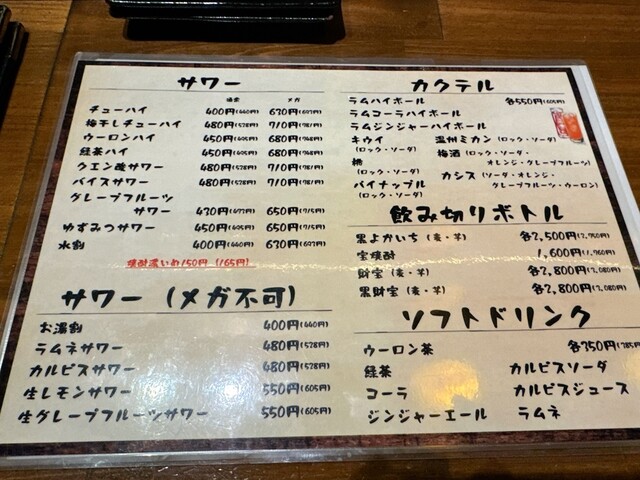 サワー
通常 メガ
チューハイ 400円(440円) 630円(693円)
梅干しチューハイ 480円(528円) 710円(781円)
ウーロンハイ 450円(495円) 680円(748円)
緑茶ハイ 450円(495円) 680円(748円)
クエン酸サワー 480円(528円) 710円(781円)
バイスサワー 480円(528円) 710円(781円)
グレープフルーツ
サワー 430円(473円) 650円(715円)
ゆずみつサワー 450円(495円) 650円(715円)
水割 400円(440円) 630円(693円)
焼酎濃いめ150円(165円)
サワー(メガ不可)
お湯割 400円(440円)
ラムネサワー 480円(528円)
カルピスサワー 480円(528円)
生レモンサワー 550円(605円)
生グレープフルーツサワー 550円(605円)
カクテル
ラムハイボール 各550円(605円)
ラムコーラハイボール
ラムジンジャーハイボール
キウイ
(ロック・ソーダ)
温州ミカン(ロック・ソーダ)
桃
(ロック・ソーダ)
梅酒(ロック・ソーダ・
オレンジ・グレープフルーツ)
パイナップル
(ロック・ソーダ)
カシス(ソーダ・オレンジ・
グレープフルーツ・ウーロン)
飲み切りボトル
黒よかいち(麦・芋) 各2,500円(2,750円)
宝焼酎 1,600円(1,760円)
財宝(麦・芋) 各2,800円(3,080円)
黒財宝(麦・芋) 各2,800円(3,080円)
ソフトドリンク
ウーロン茶 各350円(385円
緑茶 カルピスソーダ
コーラ カルピスジュース
ジンジャーエール ラムネ